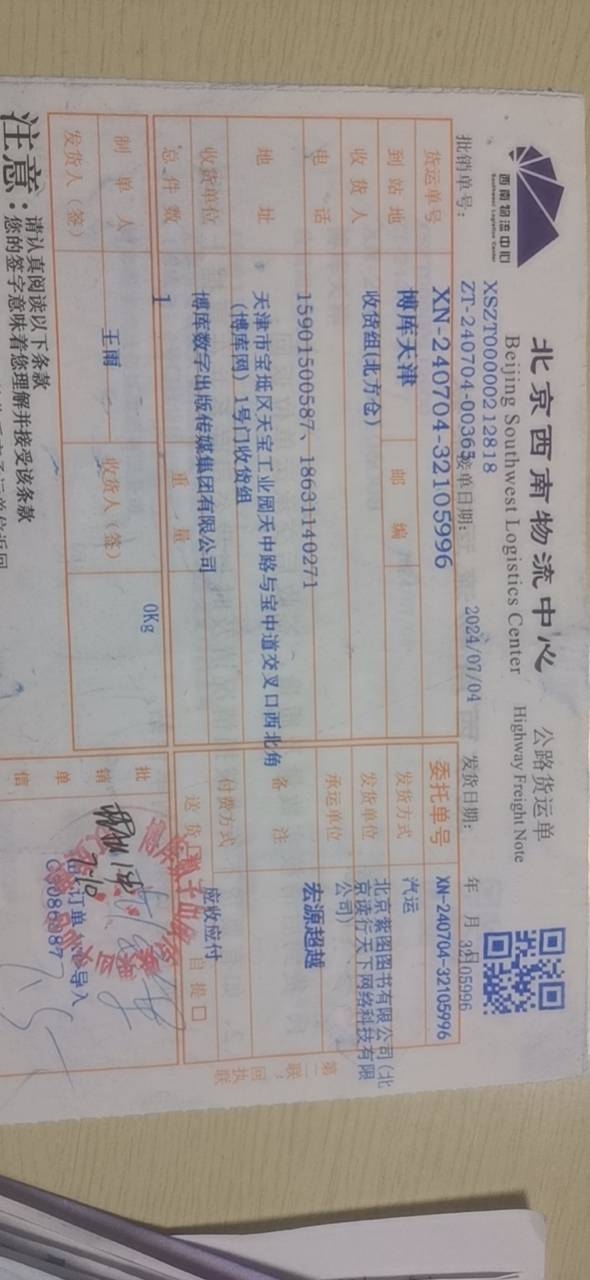 西南物流中心
Southwest Logistics Center
北京西南物流中心 公路货运单
Beijing Southwest Logistics Center Highway Freight Note
XSZT00000212818
批销单号: ZT-240704-00365 接单日期: 2024/07/04 发货日期: 年 月 日
32105996
货运单号 XN-240704-32105996 委托单号 XN-240704-32105996
到站地 博库天津 邮编 发货方式 汽运
收货人 收货组(北方仓) 发货单位 北京紫图图书有限公司(北京读行天下网络科技有限公司)
电话 15901500587、18631140271 承运单位 宏源超越
地址 天津市宝坻区天宝工业园天中路与宝中道交叉口西北角(博库网)1号门收货组 备注
收货单位 博库数字出版传媒集团有限公司 付费方式 应收应付
总件数 1 重量 0Kg 送货 自提口
制单人 王雨 收货人(签) 批销单信
发货人(签)
订单 导入
7-10
第二联:回执联
注意:
请认真阅读以下条款
您的签字意味着您理解并接受该条款